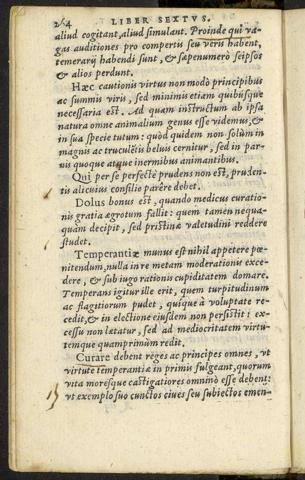 264 LIBER SEXTVS.
aliud cogitant, aliud simulant. Proinde qui va-
gas auditiones pro compertis seu veris habent,
temerarij habendi sunt, & sæpenumerò seipsos
& alios perdunt.
Hæc cautionis virtus non modò principibus
ac summis viris, sed minimis etiam quibúsque
necessaria est. Ad quam instructum ab ipsa
natura omne animalium genus esse videmus, &
in sua specie tutum: quòd quidem non solùm in
magnis ac truculētis beluis cernitur, sed in par-
uis quoque atque inermibus animantibus.
Qui per se perfectè prudens non est, pruden-
tis alicuius consilio parêre debet.
Dolus bonus est, quando medicus curatio-
nis gratia ægrotum fallit: quem tamen nequa-
quàm decipit, sed pristinæ valetudini reddere
studet.
Temperantiæ munus est nihil appetere pœ-
nitendum, nulla in re metam moderationis exce-
dere, & sub iugo rationis cupiditatem domare.
Temperans igitur ille erit, quem turpitudinum
ac flagitiorum pudet, quísque à voluptate re-
cedit, & in electione eiusdem non persistit: ex-
cessu non lætatur, sed ad mediocritatem virtu-
temque quamprimùm redit.
Curare debent reges ac principes omnes, vt
virtute temperantiæ in primis fulgeant, quorum
vita moresque castigatiores omninò esse debent:
vt exemplo suo cunctos ciues seu subiectos emen-